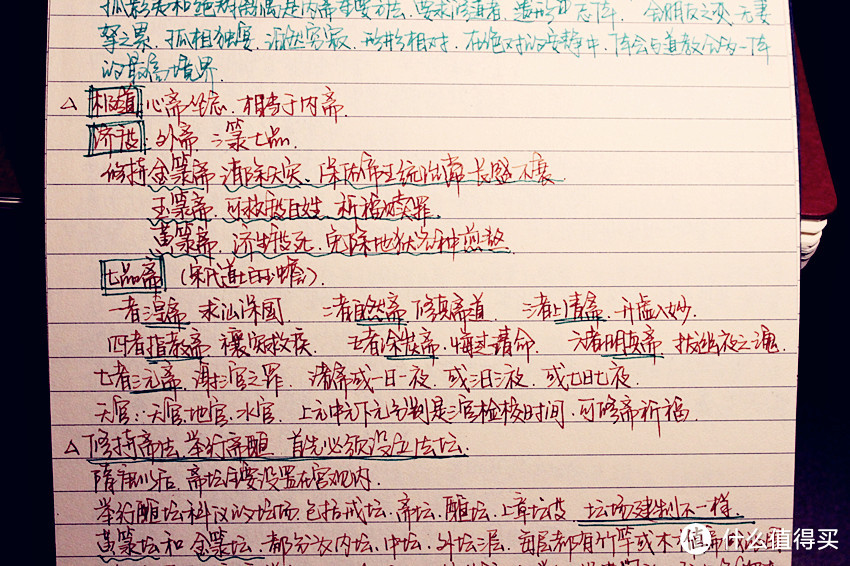 孤影夫和绝对斋偶是内斋重要方法,要求修道者,
会朋友之变,无妻
孥之累,孤相独宴,泊然穷寂,形影相对,在绝对的安静中,
的最高境界.
△ 极道 心斋坐忘,相当于内斋.
济度:外斋 三箓七品.
修持金箓斋 消除天灾,保佑帝王统治常长盛不衰
玉箓斋,可救度百姓,祈福赎罪.
黄箓斋,济生度死,免除地狱各种煎熬.
七品斋(宋代道士白玉蟾).
一者湟斋 求仙保国. 二者自然斋 修真斋道. 三者上清斋.升虚入妙.
四者指教斋 禳灾救疾. 五者涂炭斋.悔过请命. 六者明真斋 拔幽夜之魂.
七者三元斋,谢三官之罪. 诸斋或一日一夜.或三日三夜.或七日七夜.
三官:天官、地官、水官. 上元中元下元分别是三官检校时间,可修斋祈福.
△ 修持斋法,举行斋醮.首先必须设立法坛.
隋唐以后.斋坛主要设置在宫观内.
举行醮坛科仪的坛场.包括戒坛、斋坛、醮坛、上章坛等.坛场建制不一样.
黄箓坛和金箓坛.都分为内坛、中坛、外坛三层.每层都有竹竿或木
值 什么值得买